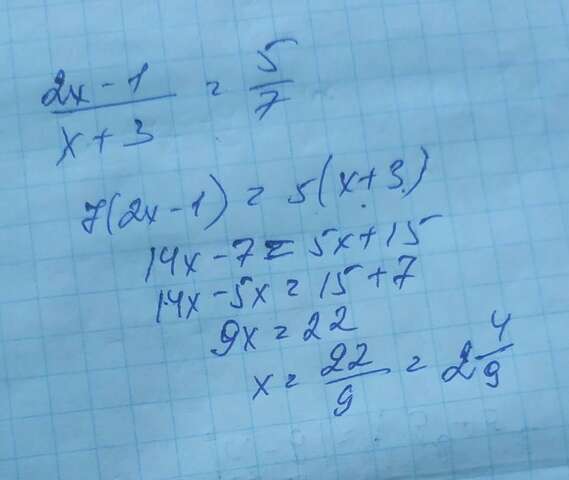 2x - 1 / x + 3 = 5 / 7
7(2x - 1) = 5(x + 3)
14x - 7 = 5x + 15
14x - 5x = 15 + 7
9x = 22
x = 22 / 9 = 2 4 / 9